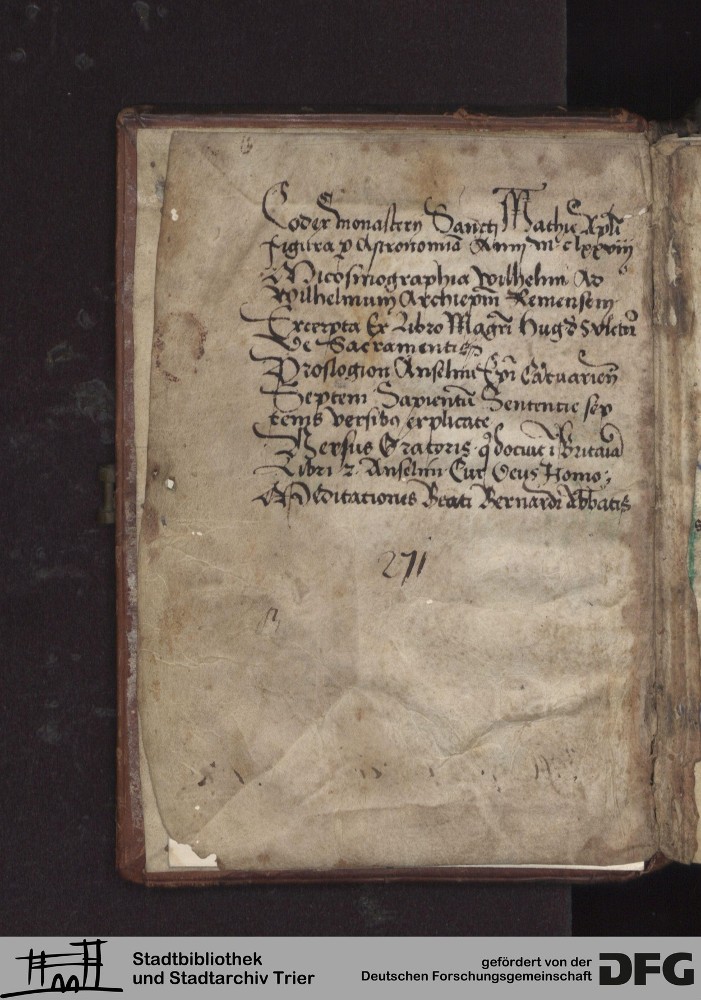 Codex monasterij Sancti Mathie Apli
figura p Astronomia Anni mclxxviij
Micosmographia Wilhelmi Ad
Wilhelmum Archiepm Remensem
Excerpta Ex Libro Magri Hugo
De Sacramentis
Proslogion Anselmi Epi Catuarien
Septem Sapientu Sententie sep
tenis versibus explicate
Versus Oratoris q docuit i Britaia
Libri 2 Anselmi Cur Deus Homo
Meditationes Beati Bernardi Abbatis
271
Stadtbibliothek
und Stadtarchiv Trier
gefördert von der
Deutschen Forschungsgemeinschaft
DFG